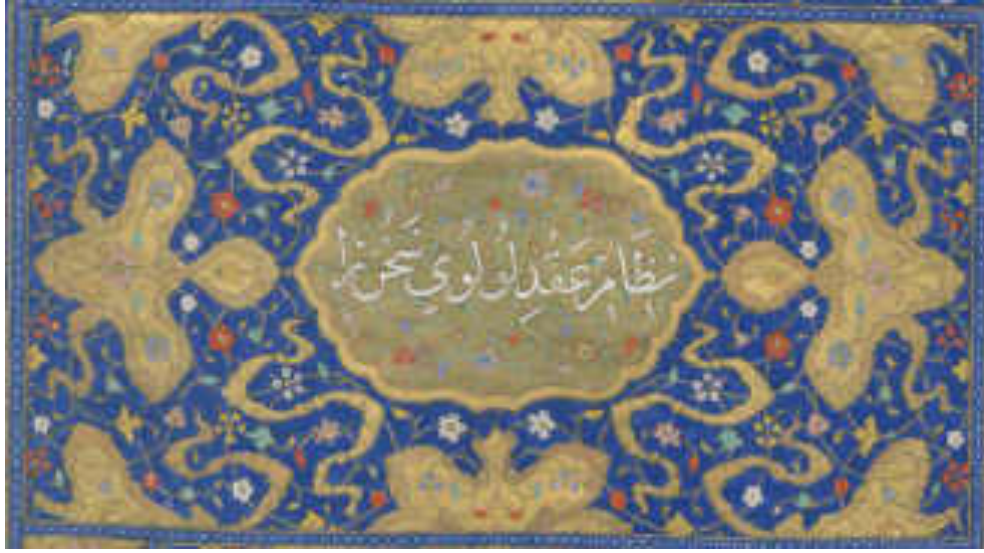 نِظَامِ عَقْدِ لُولُويِ سَخُن را